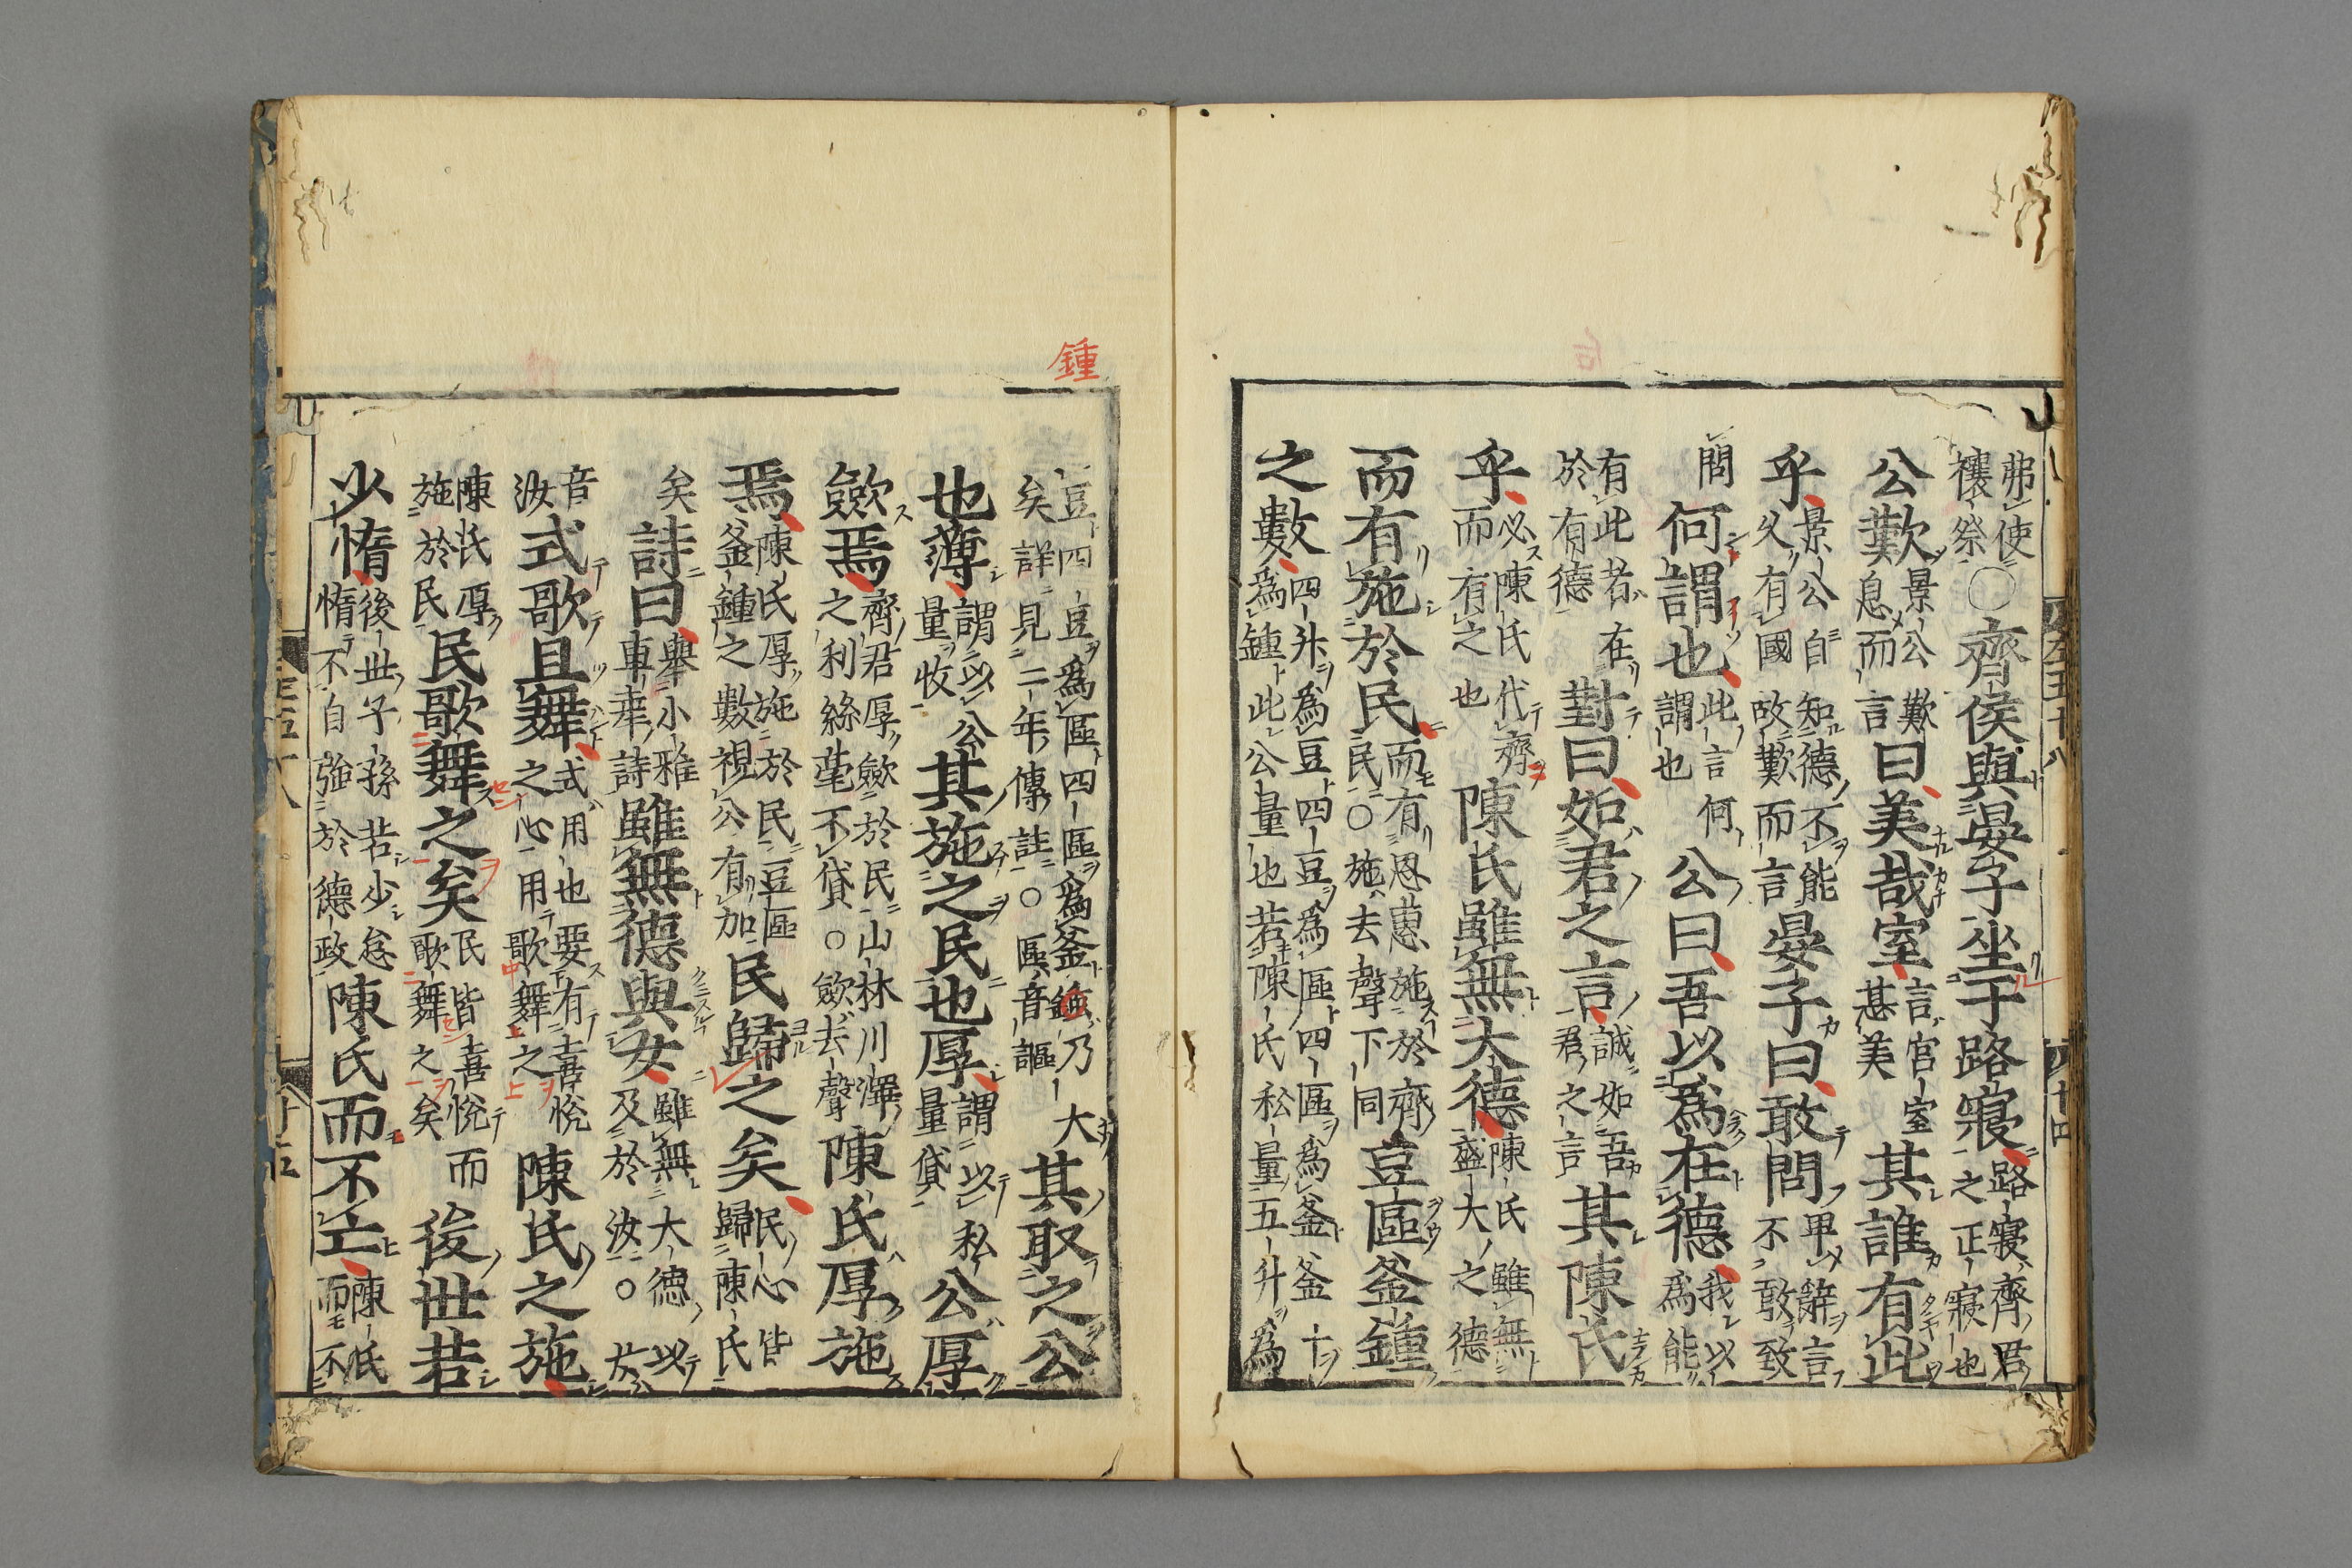 弗使
禳祭○齊侯與晏子坐于路寢路寢齊君
之正寢也
公歎景公歎
息而言曰美哉室言官室
甚美其誰有此
乎景公自知德不能
久有國故歎而言晏子曰敢問畢辭言
不敢致
問何謂也此言何
謂也公曰吾以爲在德我以
爲能
有此者在
於有德對曰如君之言誠如吾
君之言其陳氏
乎必陳氏代齊
而有之也陳氏雖無大德陳氏雖無
盛大之德
而有施於民而有恩惠施於齊
民○施去聲下同豆區釜鍾
之數四升爲豆四豆爲區四區爲釜釜十
爲鍾此公量也若陳氏私量五升爲
豆四豆爲區四區爲釜鍾乃大
矣詳見二年傳註○區音謳其取之公
也薄謂以公
量收其施之民也厚謂以私
量貸公厚
斂焉齊君厚斂於民山林川澤
之利絲毫不貸○斂去聲陳氏厚施
焉陳氏厚施於民豆區
釜鍾之數視公有加民歸之矣民心皆
歸陳氏
矣詩曰舉小雅
車舝詩雖無德與女雖無大德以
及於汝○女
音
汝式歌且舞式用也要有喜悅
之心用歌舞之陳氏之施
陳氏厚
施於民民歌舞之矣民皆喜悅而
歌舞之矣後世若
少惰後世子孫若少怠
惰不自強於德政陳氏而不亡陳氏
而不
鍾